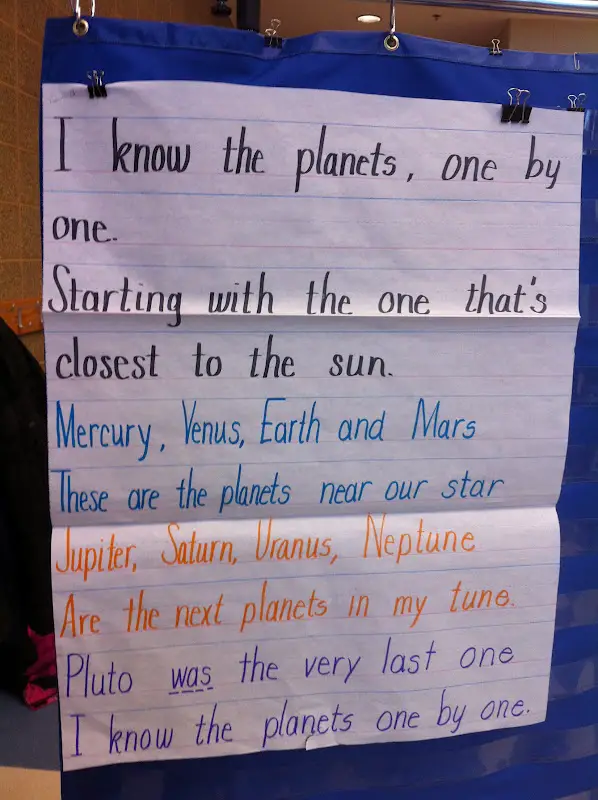 I know the planets, one by
one.
Starting with the one that's
closest to the sun.
Mercury, Venus, Earth and Mars
These are the planets near our star
Jupiter, Saturn, Uranus, Neptune
Are the next planets in my tune.
Pluto was the very last one
I know the planets one by one.